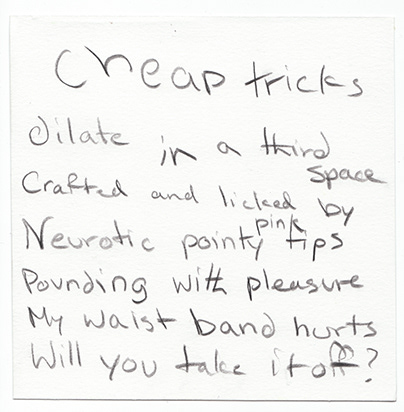 Cheap tricks
Dilate in a third space
Crafted and licked by
Neurotic pointy pink tips
Pounding with pleasure
My waist band hurts
Will you take it off?